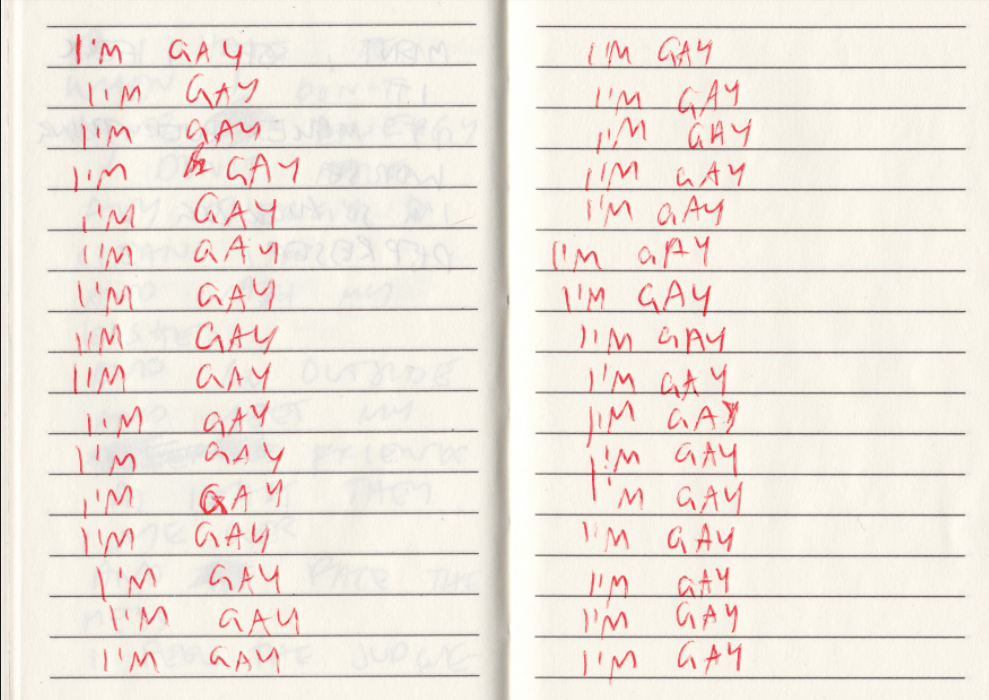 I'M GAY
I'M GAY
I'M GAY
I'M GAY
I'M GAY
I'M GAY
I'M GAY
I'M GAY
I'M GAY
I'M GAY
I'M GAY
I'M GAY
I'M GAY
I'M GAY
I'M GAY
I'M GAY
I'M GAY
I'M GAY
I'M GAY
I'M GAY
I'M GAY
I'M GAY
I'M GAY
I'M GAY
I'M GAY
I'M GAY
I'M GAY
I'M GAY
I'M GAY
I'M GAY
I'M GAY
I'M GAY